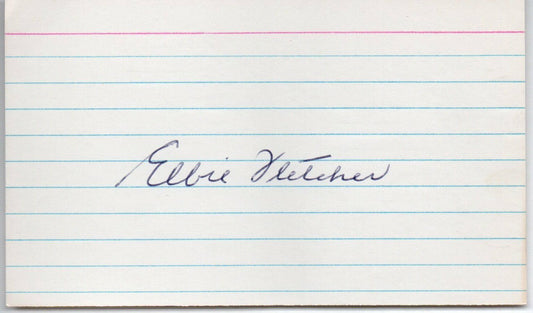 Elbie Fletcher